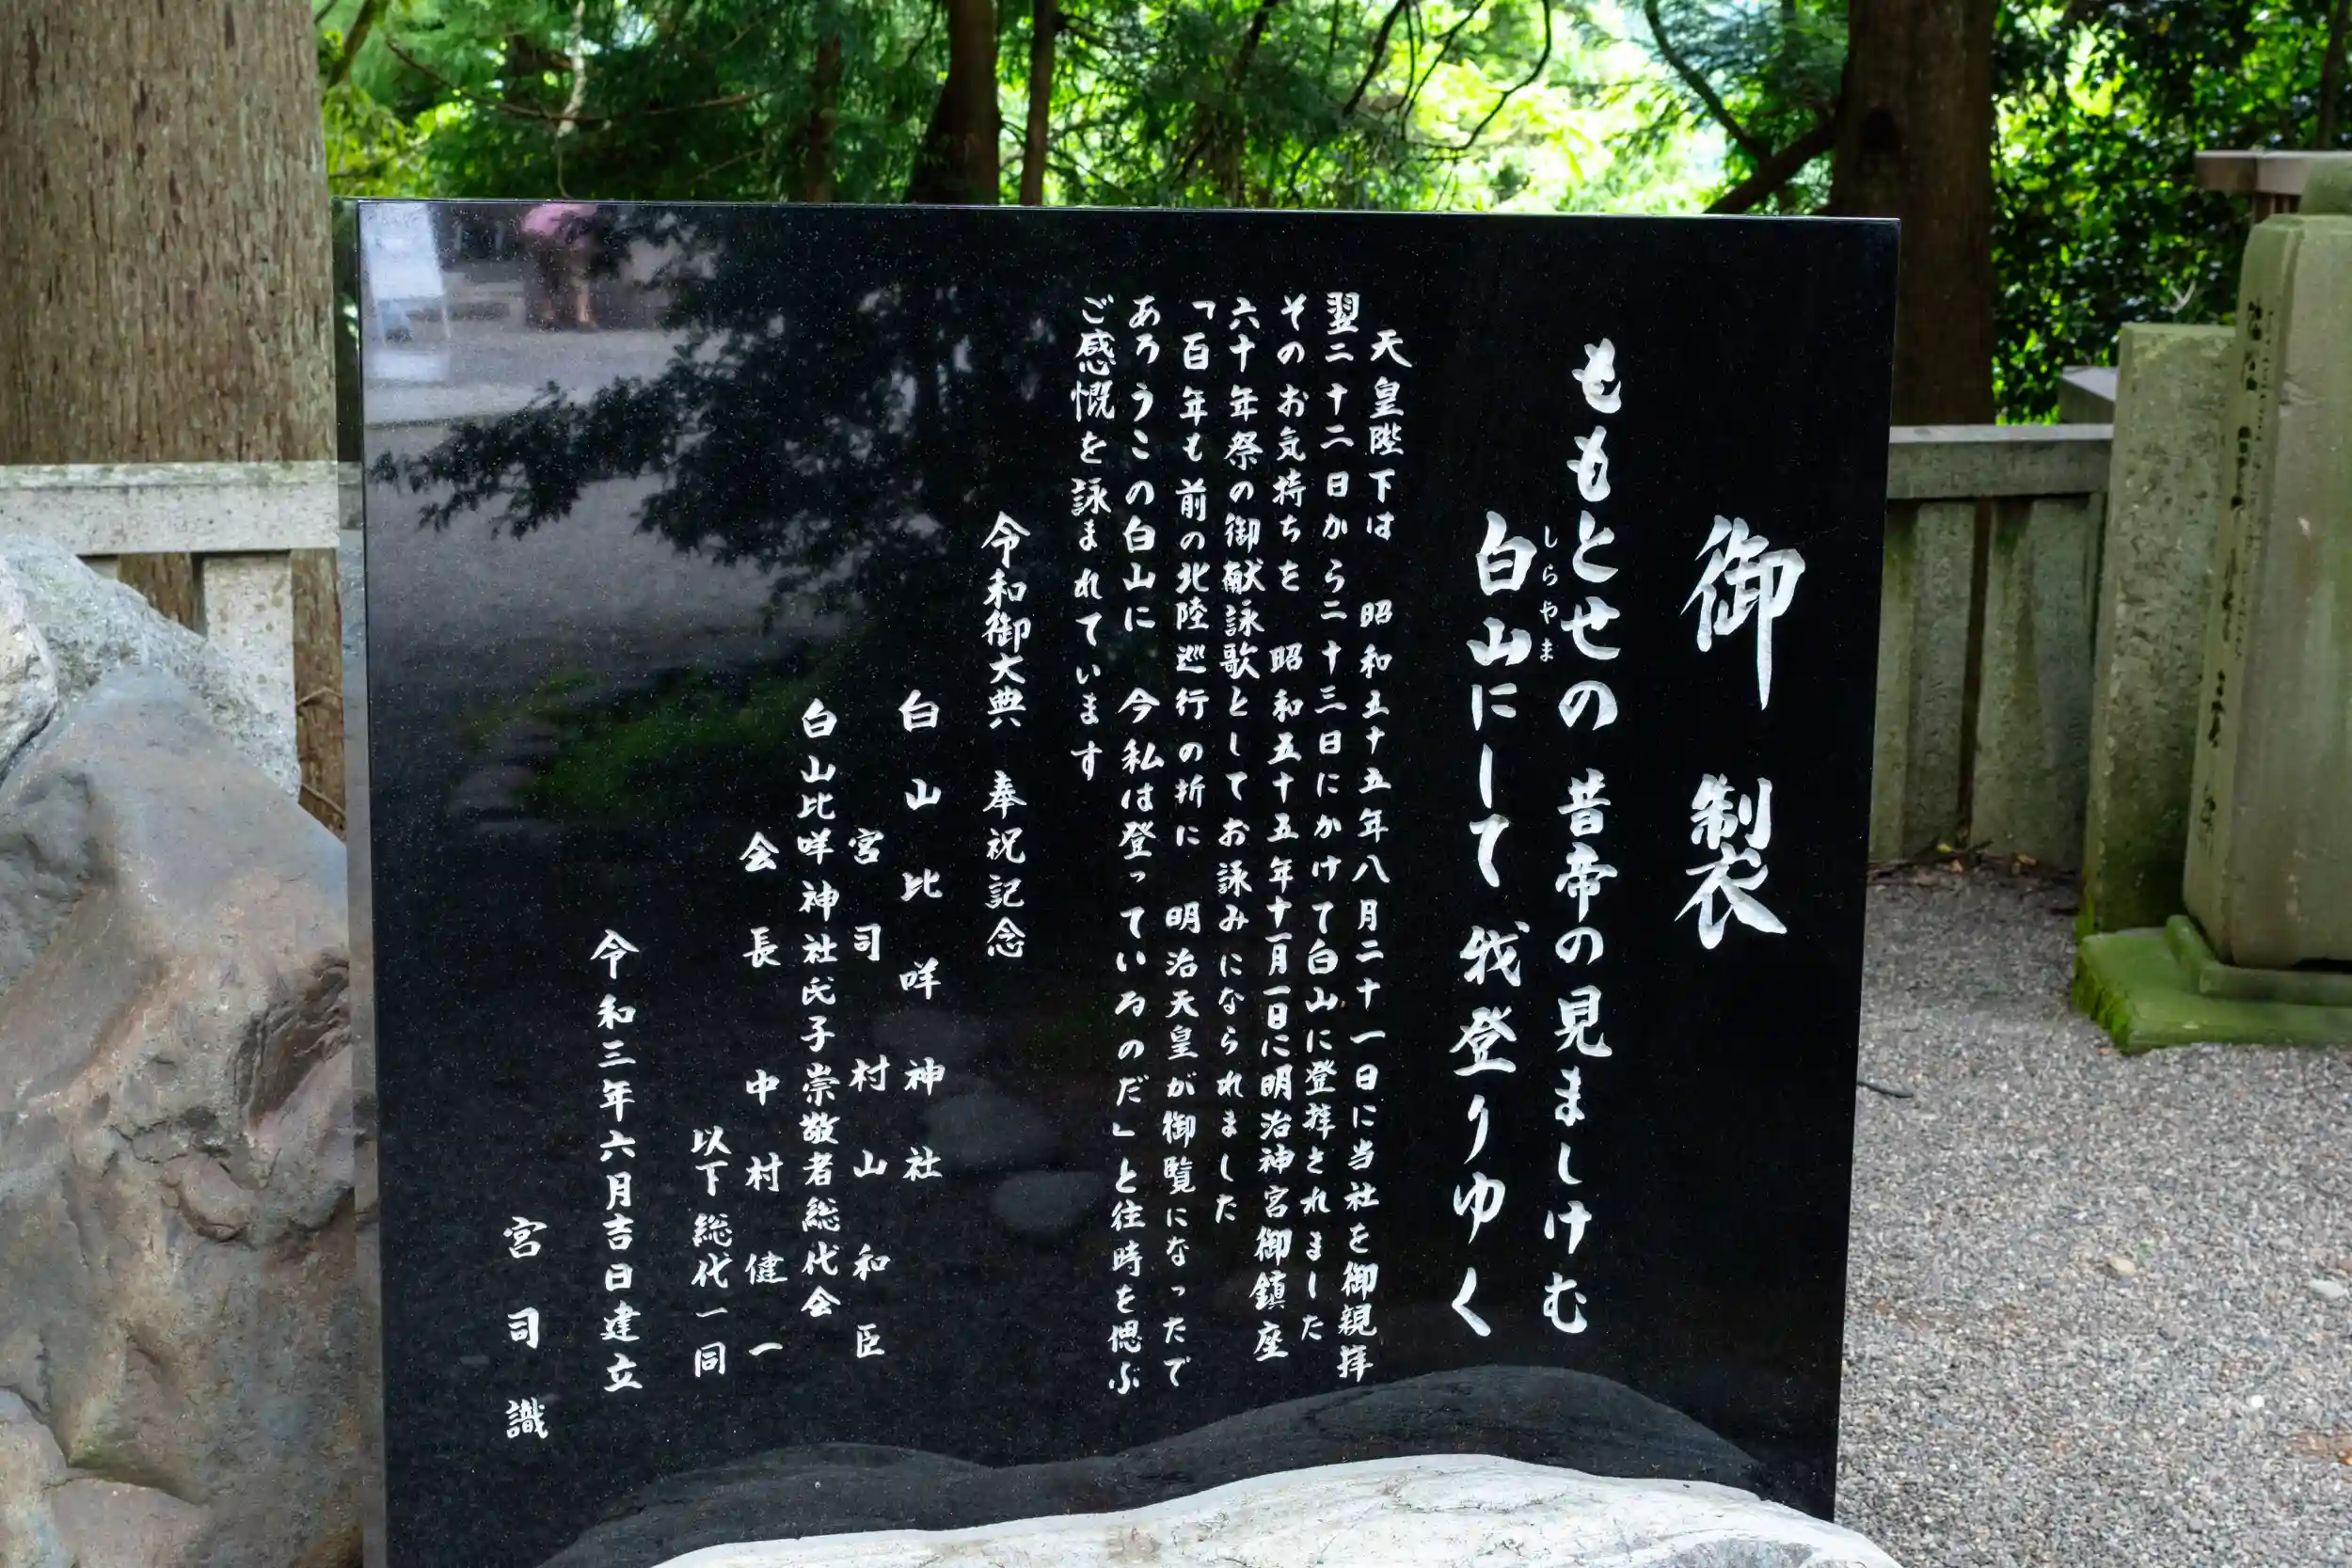 御製
ももとせの 昔帝の見ましけむ
白山にして 我登りゆく
しらやま
天皇陛下は 昭和五十五年八月二十一日に当社を御親拝
翌二十二日から二十三日にかけて白山に登拝されました
そのお気持ちを 昭和五十五年十一月一日に明治神宮御鎮座
六十年祭の御献詠歌としてお詠みになられました
「百年も前の北陸巡行の折に 明治天皇が御覧になったで
あろうこの白山に 今私は登っているのだ」と往時を偲ぶ
ご感慨を詠まれています
令和御大典 奉祝記念
白山比咩神社
宮司 村山和臣
白山比咩神社氏子崇敬者総代会
会長 中村健一
以下総代一同
令和三年六月吉日建立
宮司識